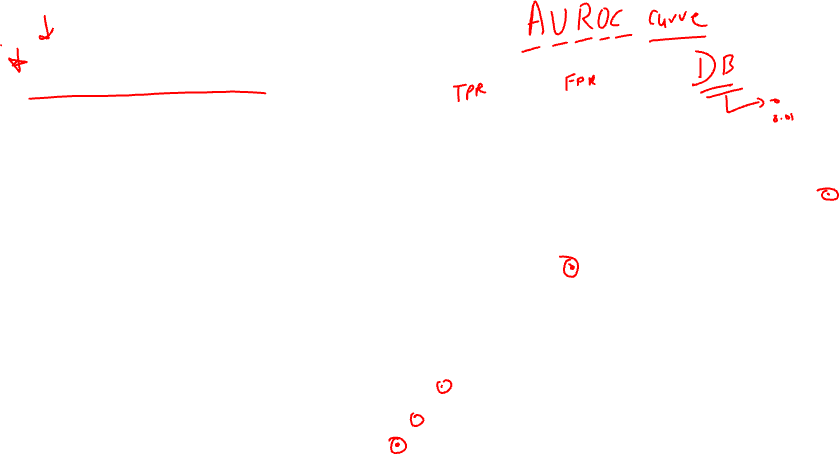 AUROC curve
TPR FPR DB
0.01